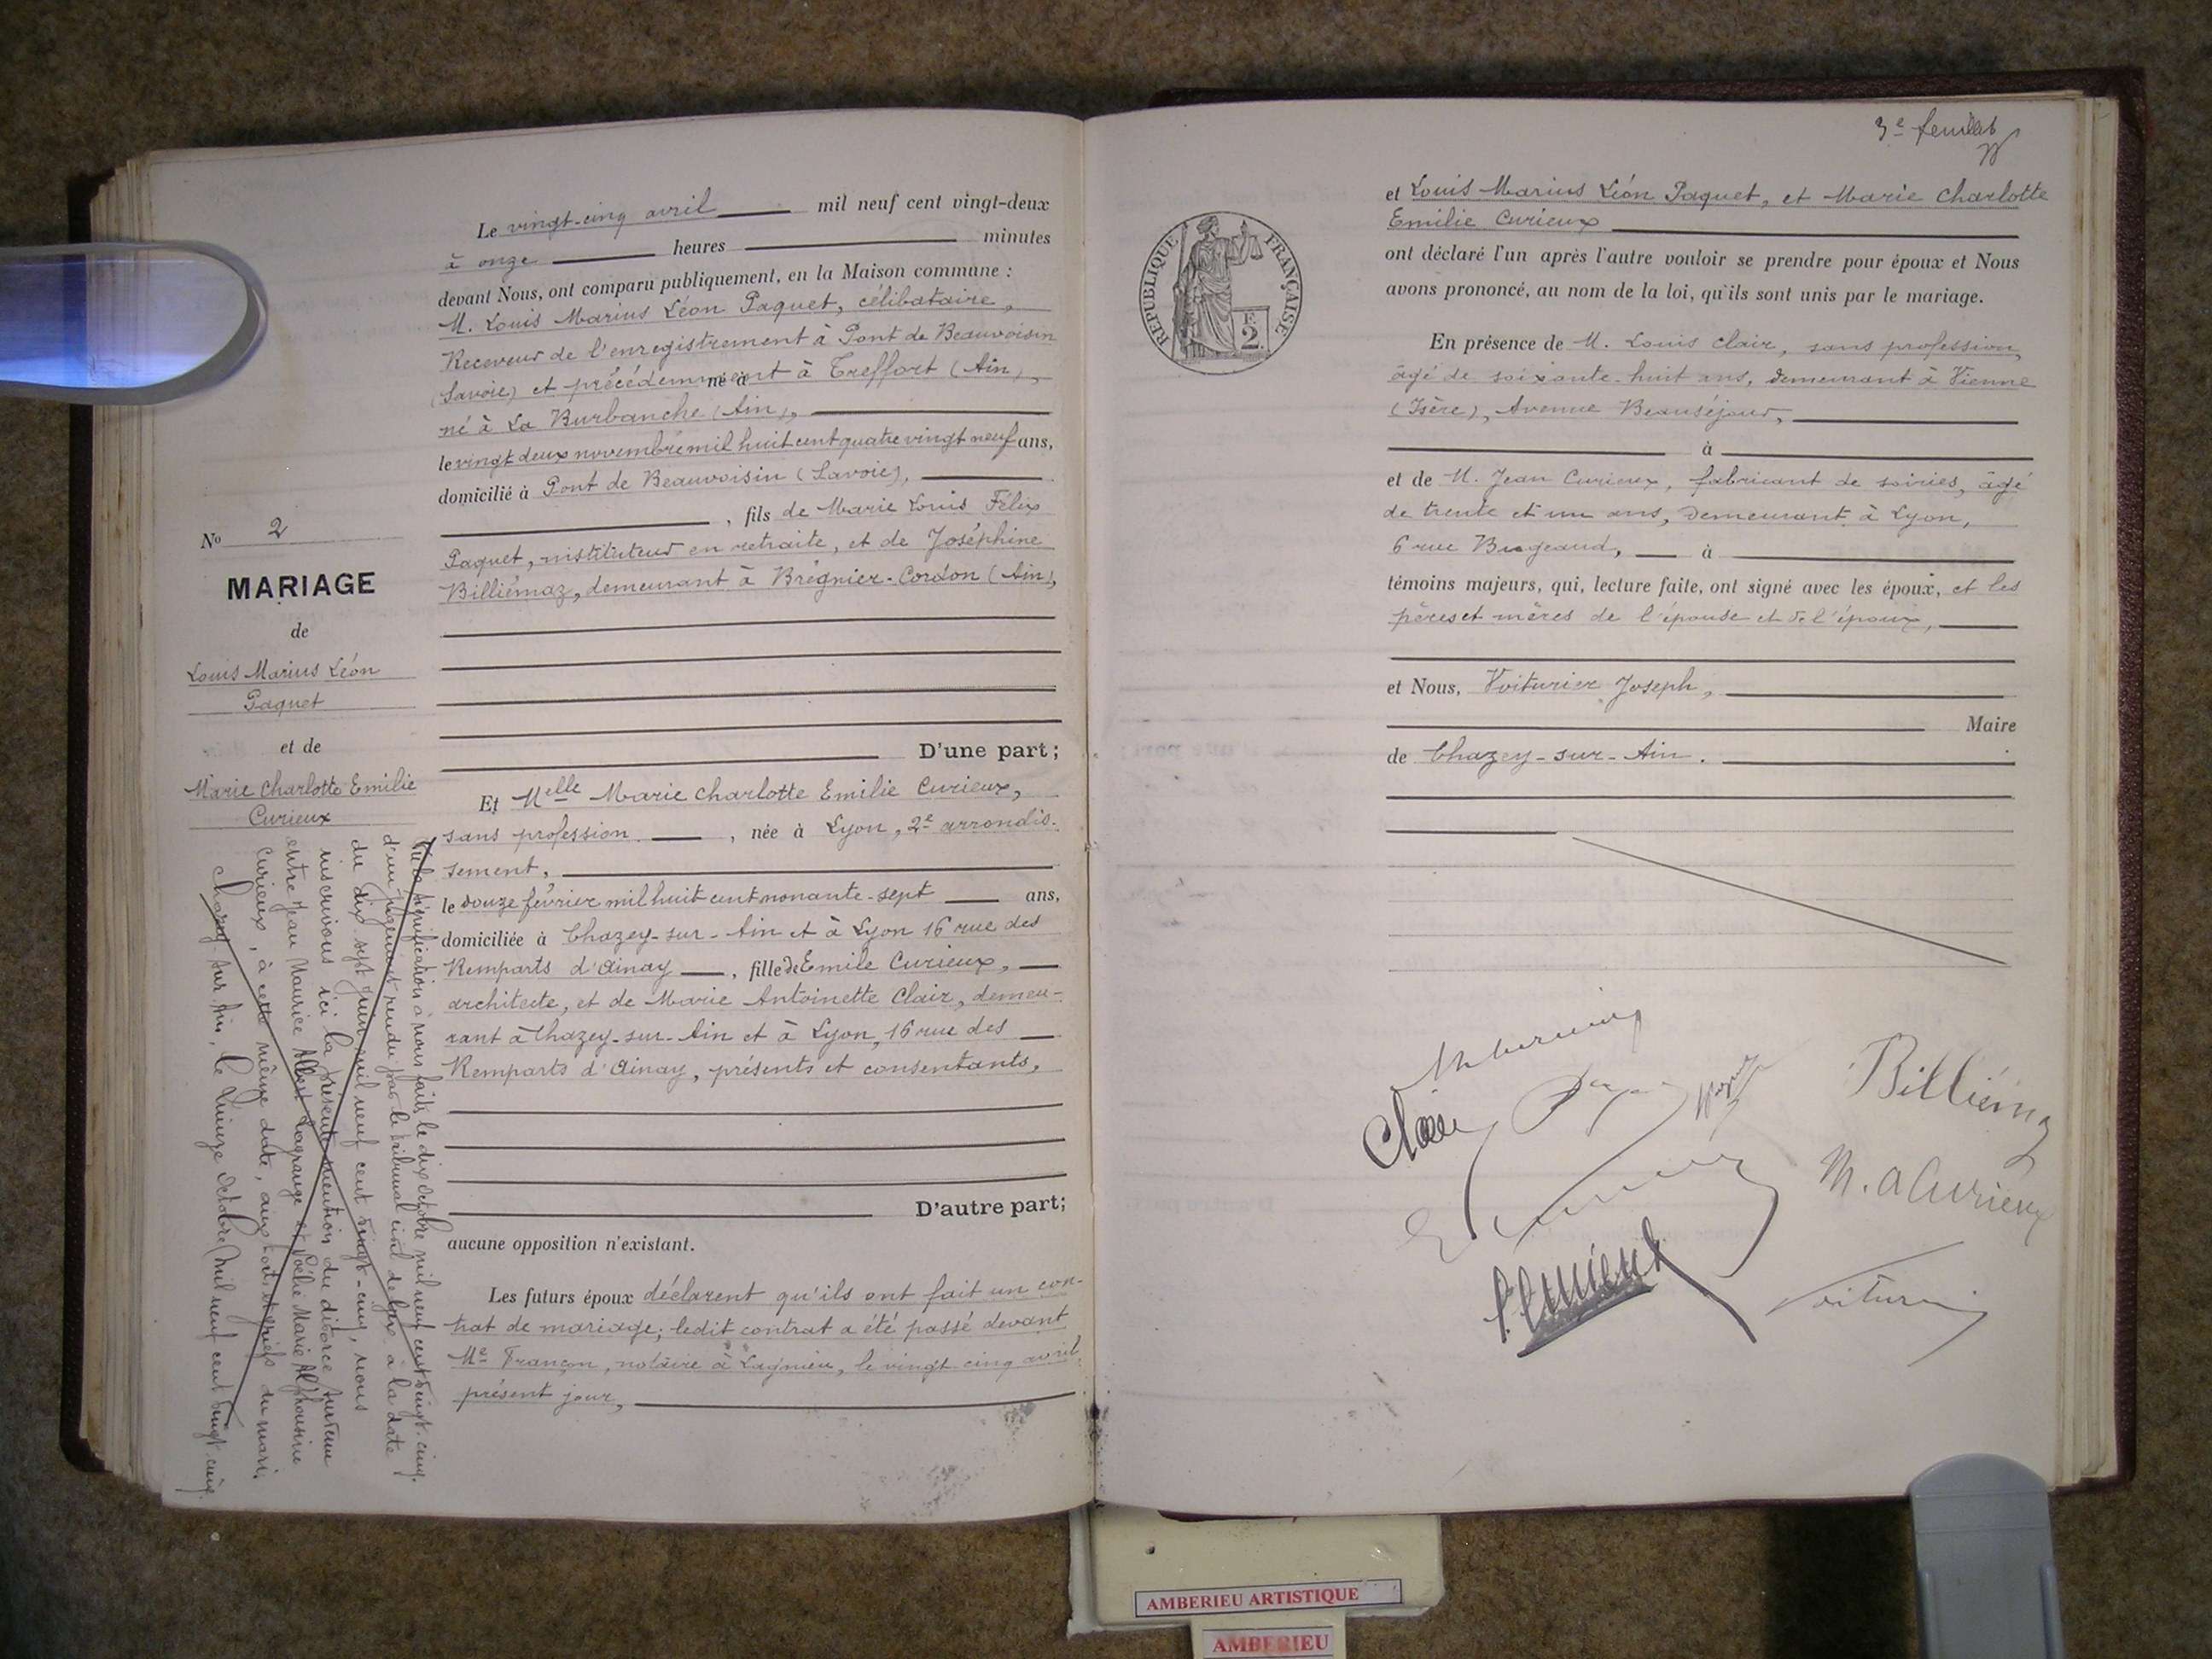 Le vingt-cinq avril mil neuf cent vingt-deux
à onze heures minutes
devant Nous, ont comparu publiquement, en la Maison commune :
M. Louis Marius Léon Paquet, célibataire,
Receveur de l'enregistrement à Pont de Beauvoisin
(Savoie) et précédemment à Treffort (Ain),
né à
né à La Burbanche (Ain),
le vingt deux novembre mil huit cent quatre vingt neuf ans,
domicilié à Pont de Beauvoisin (Savoie),
, fils de Marie Louis Félix
Paquet, instituteur en retraite, et de Joséphine
Billiémaz, demeurant à Brégnier-Cordon (Ain),
D'une part ;
Et Melle Marie Charlotte Emilie Curieux,
sans profession , née à Lyon, 2e arrondis-
sement,
le douze février mil huit cent nonante-sept ans,
domiciliée à Chazey-sur-Ain et à Lyon 16 rue des
Remparts d'Ainay , fille de Emile Curieux,
architecte, et de Marie Antoinette Clair, demeu-
rant à Chazey-sur-Ain et à Lyon, 16 rue des
Remparts d'Ainay, présents et consentants,
D'autre part ;
aucune opposition n'existant.
Les futurs époux déclarent qu'ils ont fait un con-
trat de mariage ; ledit contrat a été passé devant
Me Françon, notaire à Lagnieu, le vingt cinq avril,
présent jour,
No 2
MARIAGE
de
Louis Marius Léon
Paquet
et de
Marie Charlotte Emilie
Curieux
Vu la signification à nous faite le dix octobre mil neuf cent vingt-cinq.
d'un jugement rendu par le tribunal civil de Lyon à la date
du dix-sept juin mil neuf cent vingt-cinq, nous
inscrivons ici la présente mention du divorce survenu
entre Jean Maurice Albert Lagrange et Noélie Marie Alphonsine
Curieux, à cette même date, aux torts et griefs du mari.
Chazey sur Ain, le quinze octobre mil neuf cent vingt cinq.
3e feuillet
RÉPUBLIQUE FRANÇAISE
F. 2.
et Louis Marius Léon Paquet, et Marie Charlotte
Emilie Curieux
ont déclaré l'un après l'autre vouloir se prendre pour époux et Nous
avons prononcé, au nom de la loi, qu'ils sont unis par le mariage.
En présence de M. Louis Clair, sans profession,
âgé de soixante-huit ans, demeurant à Vienne
(Isère), Avenue Beauséjour,
à
et de M. Jean Curieux, fabricant de soiries, âgé
de trente et un ans, demeurant à Lyon,
6 rue Bugeaud, à
témoins majeurs, qui, lecture faite, ont signé avec les époux, et les
pères et mères de l'épouse et de l'époux,
et Nous, Voiturier Joseph,
Maire
de Chazey-sur-Ain .
Clair
Billiémaz
M. A Curieux
Curieux
Voiturier
AMBERIEU ARTISTIQUE
AMBERIEU